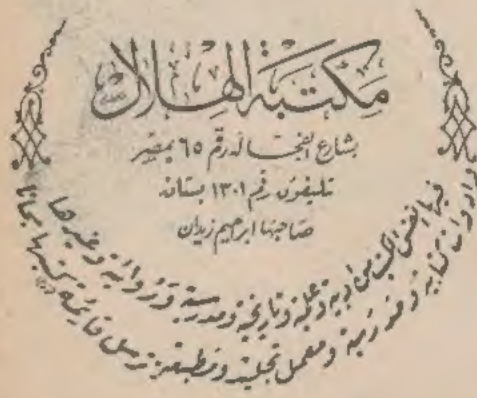 مكتبة الهلال
بشارع الفجالة رقم ٦٥ بمصر
تليفون رقم ١٣٠١ بستان
صاحبها ابراهيم زيدان
فيها انفس الكتب من ادبية وعلمية وتاريخية ومدرسية وروائية وغيرها
وادوات كتابية ومدرسية ومعمل تجليد ومطبعة ترسل قائمة كتبها مجانا